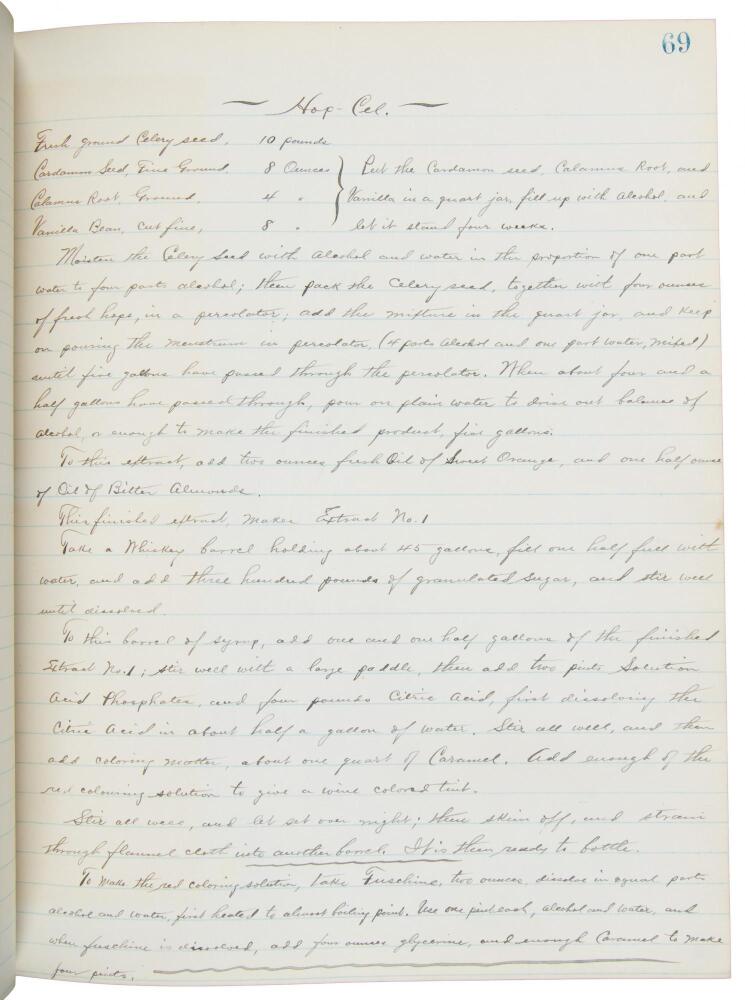 69
— Hop-Cel. —
Fresh ground Celery seed, 10 pounds
Cardamon Seed, Fine Ground, 8 Ounces } Put the Cardamon seed, Calamus Root, and
Calamus Root, Ground, 4 " Vanilla in a quart jar, fill up with Alcohol, and
Vanilla Bean, cut fine, 8 " let it stand four weeks.
Moisten the Celery Seed with Alcohol and water in the proportion of one part
water to four parts alcohol; then pack the Celery seed, together with four ounces
of fresh hops, in a percolator; add the mixture in the quart jar, and keep
on pouring the menstrum in percolator, (4 parts Alcohol and one part water, mixed)
until five gallons have passed through the percolator. When about four and a
half gallons have passed through, pour on plain water to drive out balance of
alcohol, or enough to make the finished product, five gallons.
To this extract, add two ounces fresh Oil of Sweet Orange, and one half ounce
of Oil of Bitter Almonds.
This finished extract, makes Extract No. 1
Take a Whiskey barrel holding about 45 gallons, fill one half full with
water, and add three hundred pounds of granulated sugar, and stir well
until dissolved.
To this barrel of syrup, add one and one half gallons of the finished
Extract No. 1; stir well with a large paddle, then add two pints Solution
Acid Phosphates, and four pounds Citric Acid, first dissolving the
Citric Acid in about half a gallon of water. Stir all well, and then
add coloring matter, about one quart of Caramel. Add enough of the
red colouring solution to give a wine colored tint.
Stir all well, and let set over night; then skim off, and strain
through flannel cloth into another barrel. It is then ready to bottle.
To make the red coloring solution, take Fuschine, two ounces, dissolve in equal parts
alcohol and water, first heated to almost boiling point. Use one pint each, alcohol and water, and
when fuschine is dissolved, add four ounces glycerine, and enough Caramel to make
four pints.